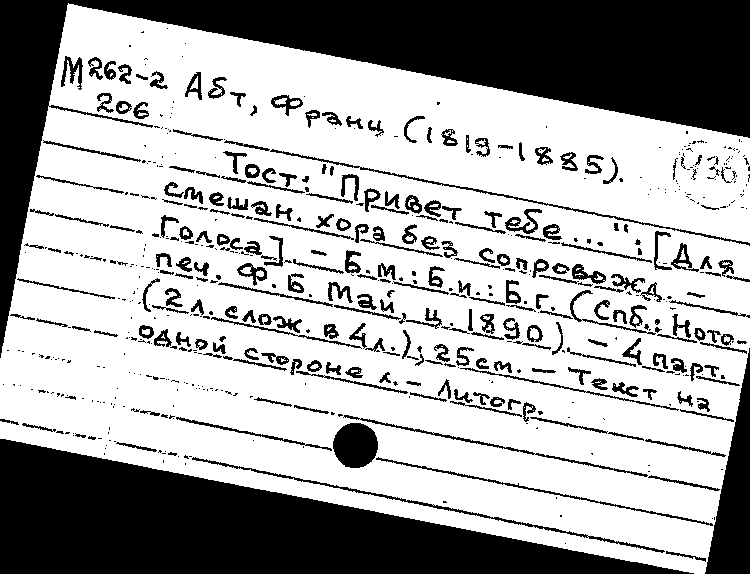 М262-2 Абт, Франц (1819-1885).
206
436
Тост: "Привет тебе...": [Для
смешан. хора без сопровожд. –
Голоса]. – Б.м.: Б.и.: Б.г. (Спб.: Ното-
печ. Ф.Б. Май, ц. 1890). – 4 парт.
(2 л. слож. в 4 л.); 25 см. – Текст на
одной стороне л. – Литогр.